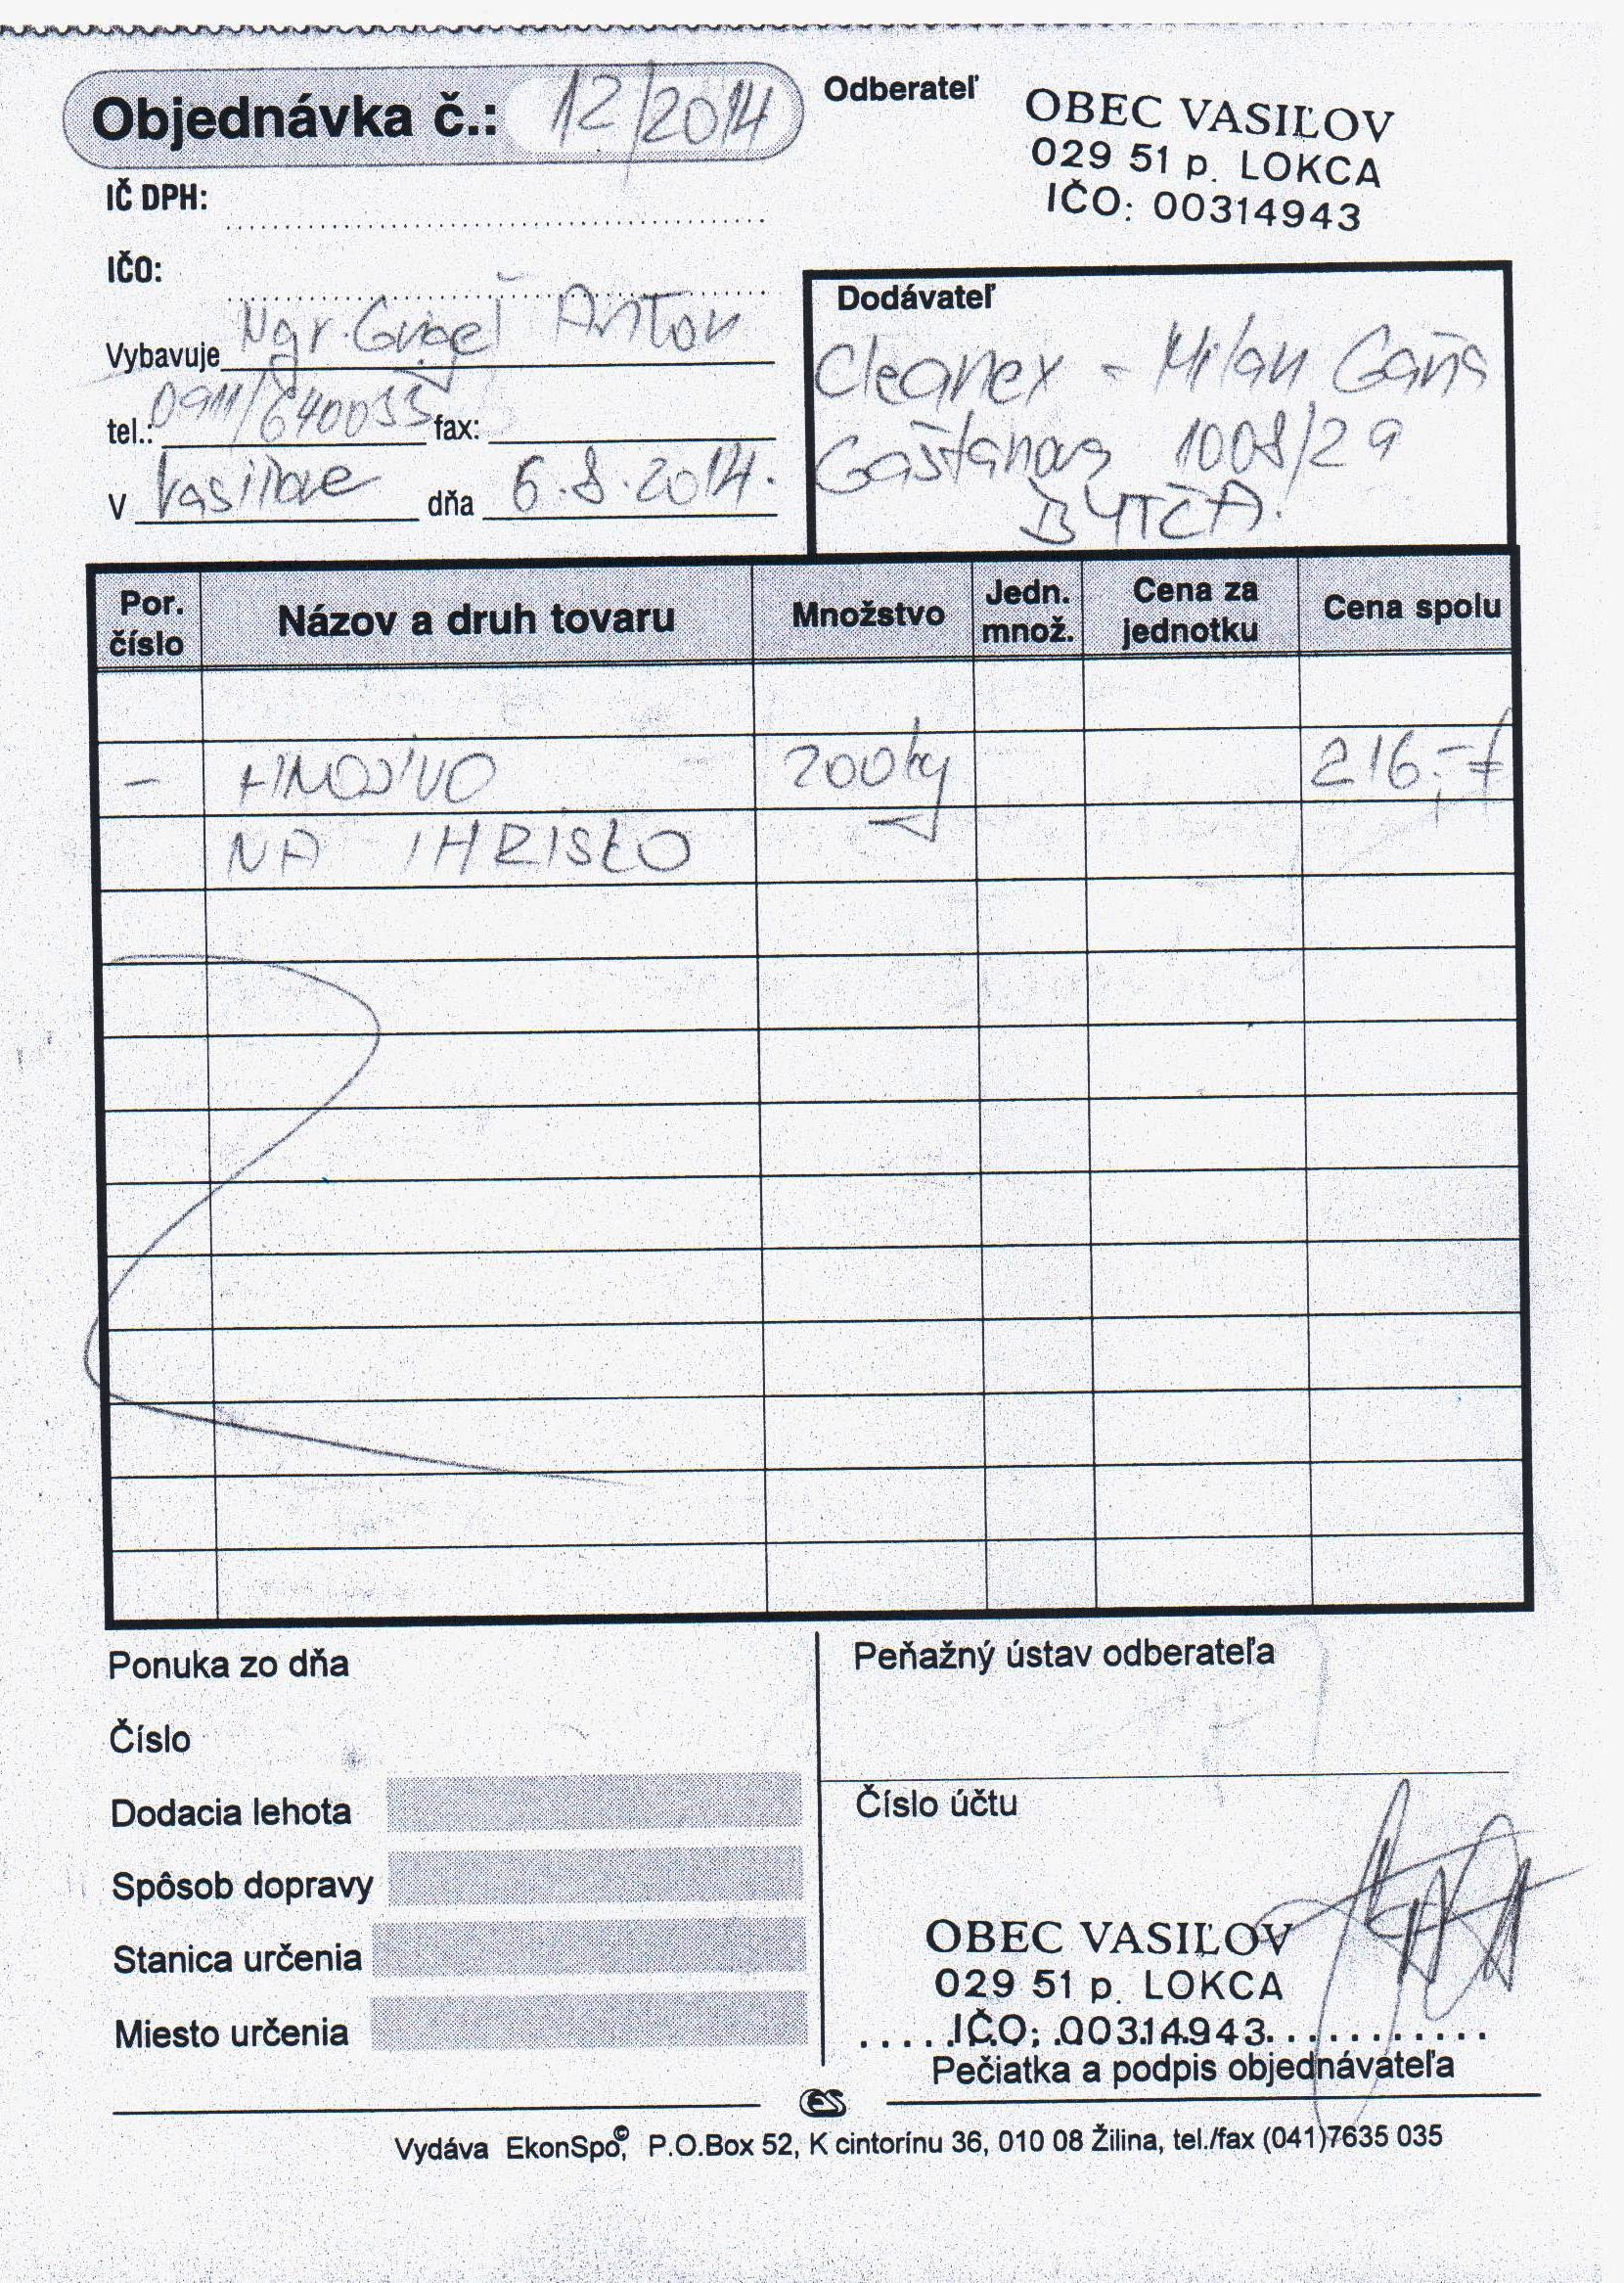 Objednávka č.: 12/2014
Odberateľ
OBEC VASIĽOV
029 51 p. LOKCA
IČO: 00314943
IČ DPH:
IČO:
Vybavuje Mgr. Anton
tel.: 0911/640033 fax:
V Vasiľove dňa 6.8.2014.
Dodávateľ
Cleanex - Milan Gaňa
Gaštanova 1008/29
BYTČA
Por. číslo
Názov a druh tovaru
Množstvo
Jedn. množ.
Cena za jednotku
Cena spolu
- HNOJIVO 200kg 216,-€
NA IHRISKO
Ponuka zo dňa
Číslo
Dodacia lehota
Spôsob dopravy
Stanica určenia
Miesto určenia
Peňažný ústav odberateľa
Číslo účtu
OBEC VASIĽOV
029 51 p. LOKCA
IČO: 00314943
Pečiatka a podpis objednávateľa
ES
Vydáva EkonSpo©, P.O.Box 52, K cintorínu 36, 010 08 Žilina, tel./fax (041)7635 035